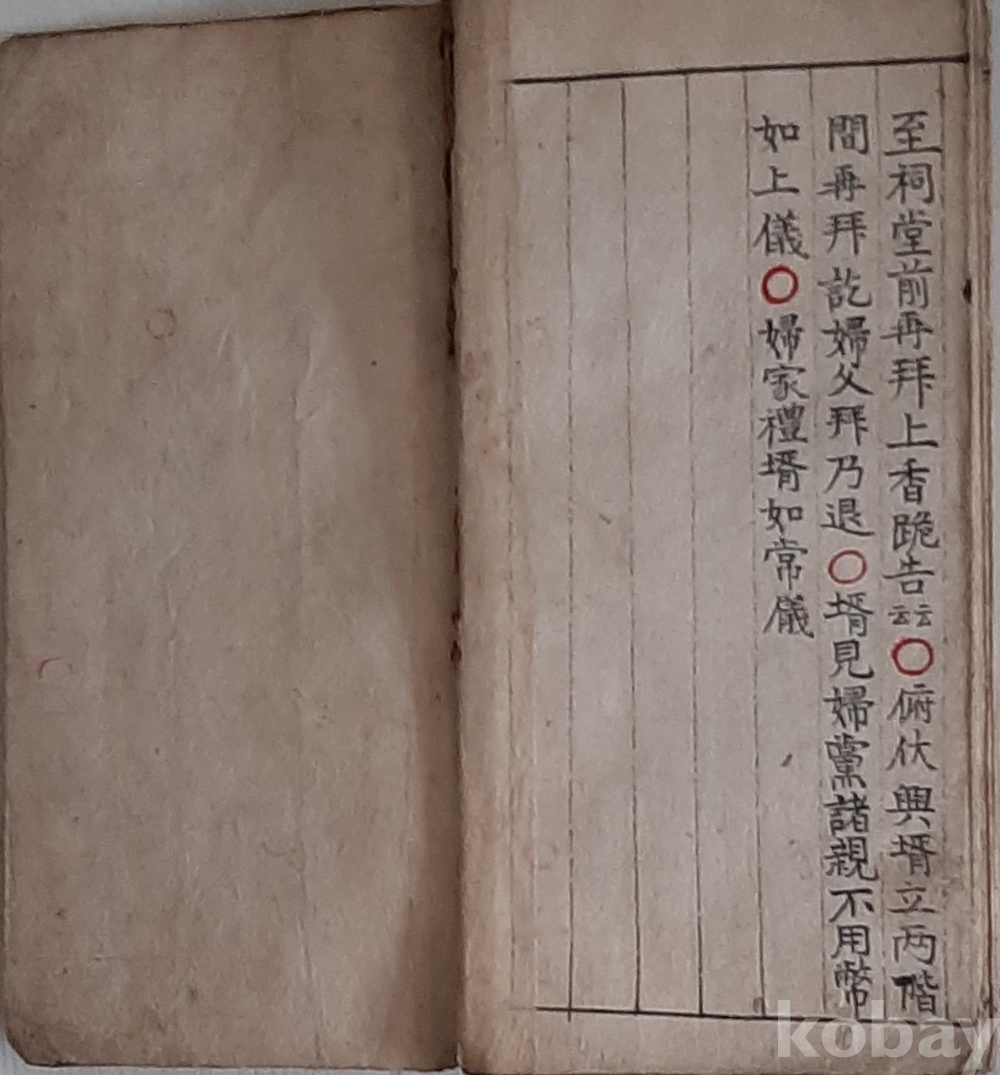 至祠堂前再拜上香跪告云云〇俯伏興壻立两階
間再拜訖婦父拜乃退〇壻見婦黨諸親不用幣
如上儀〇婦家禮壻如常儀
kobay